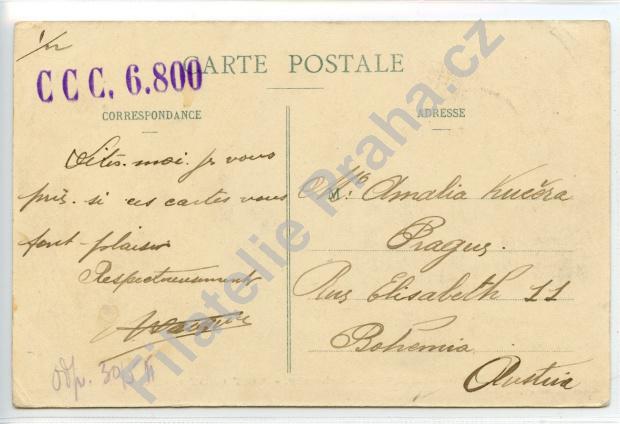 1/12
CCC. 6.800
CARTE POSTALE
CORRESPONDANCE
ADRESSE
Dites-moi je vous
prie si ces cartes vous
font plaisir
Respectueusement
Mlle Amalia Kučera
Prague.
Rue Elisabeth 11
Bohemia
Austria
odp. 30/5 11
Filatelie Praha.cz